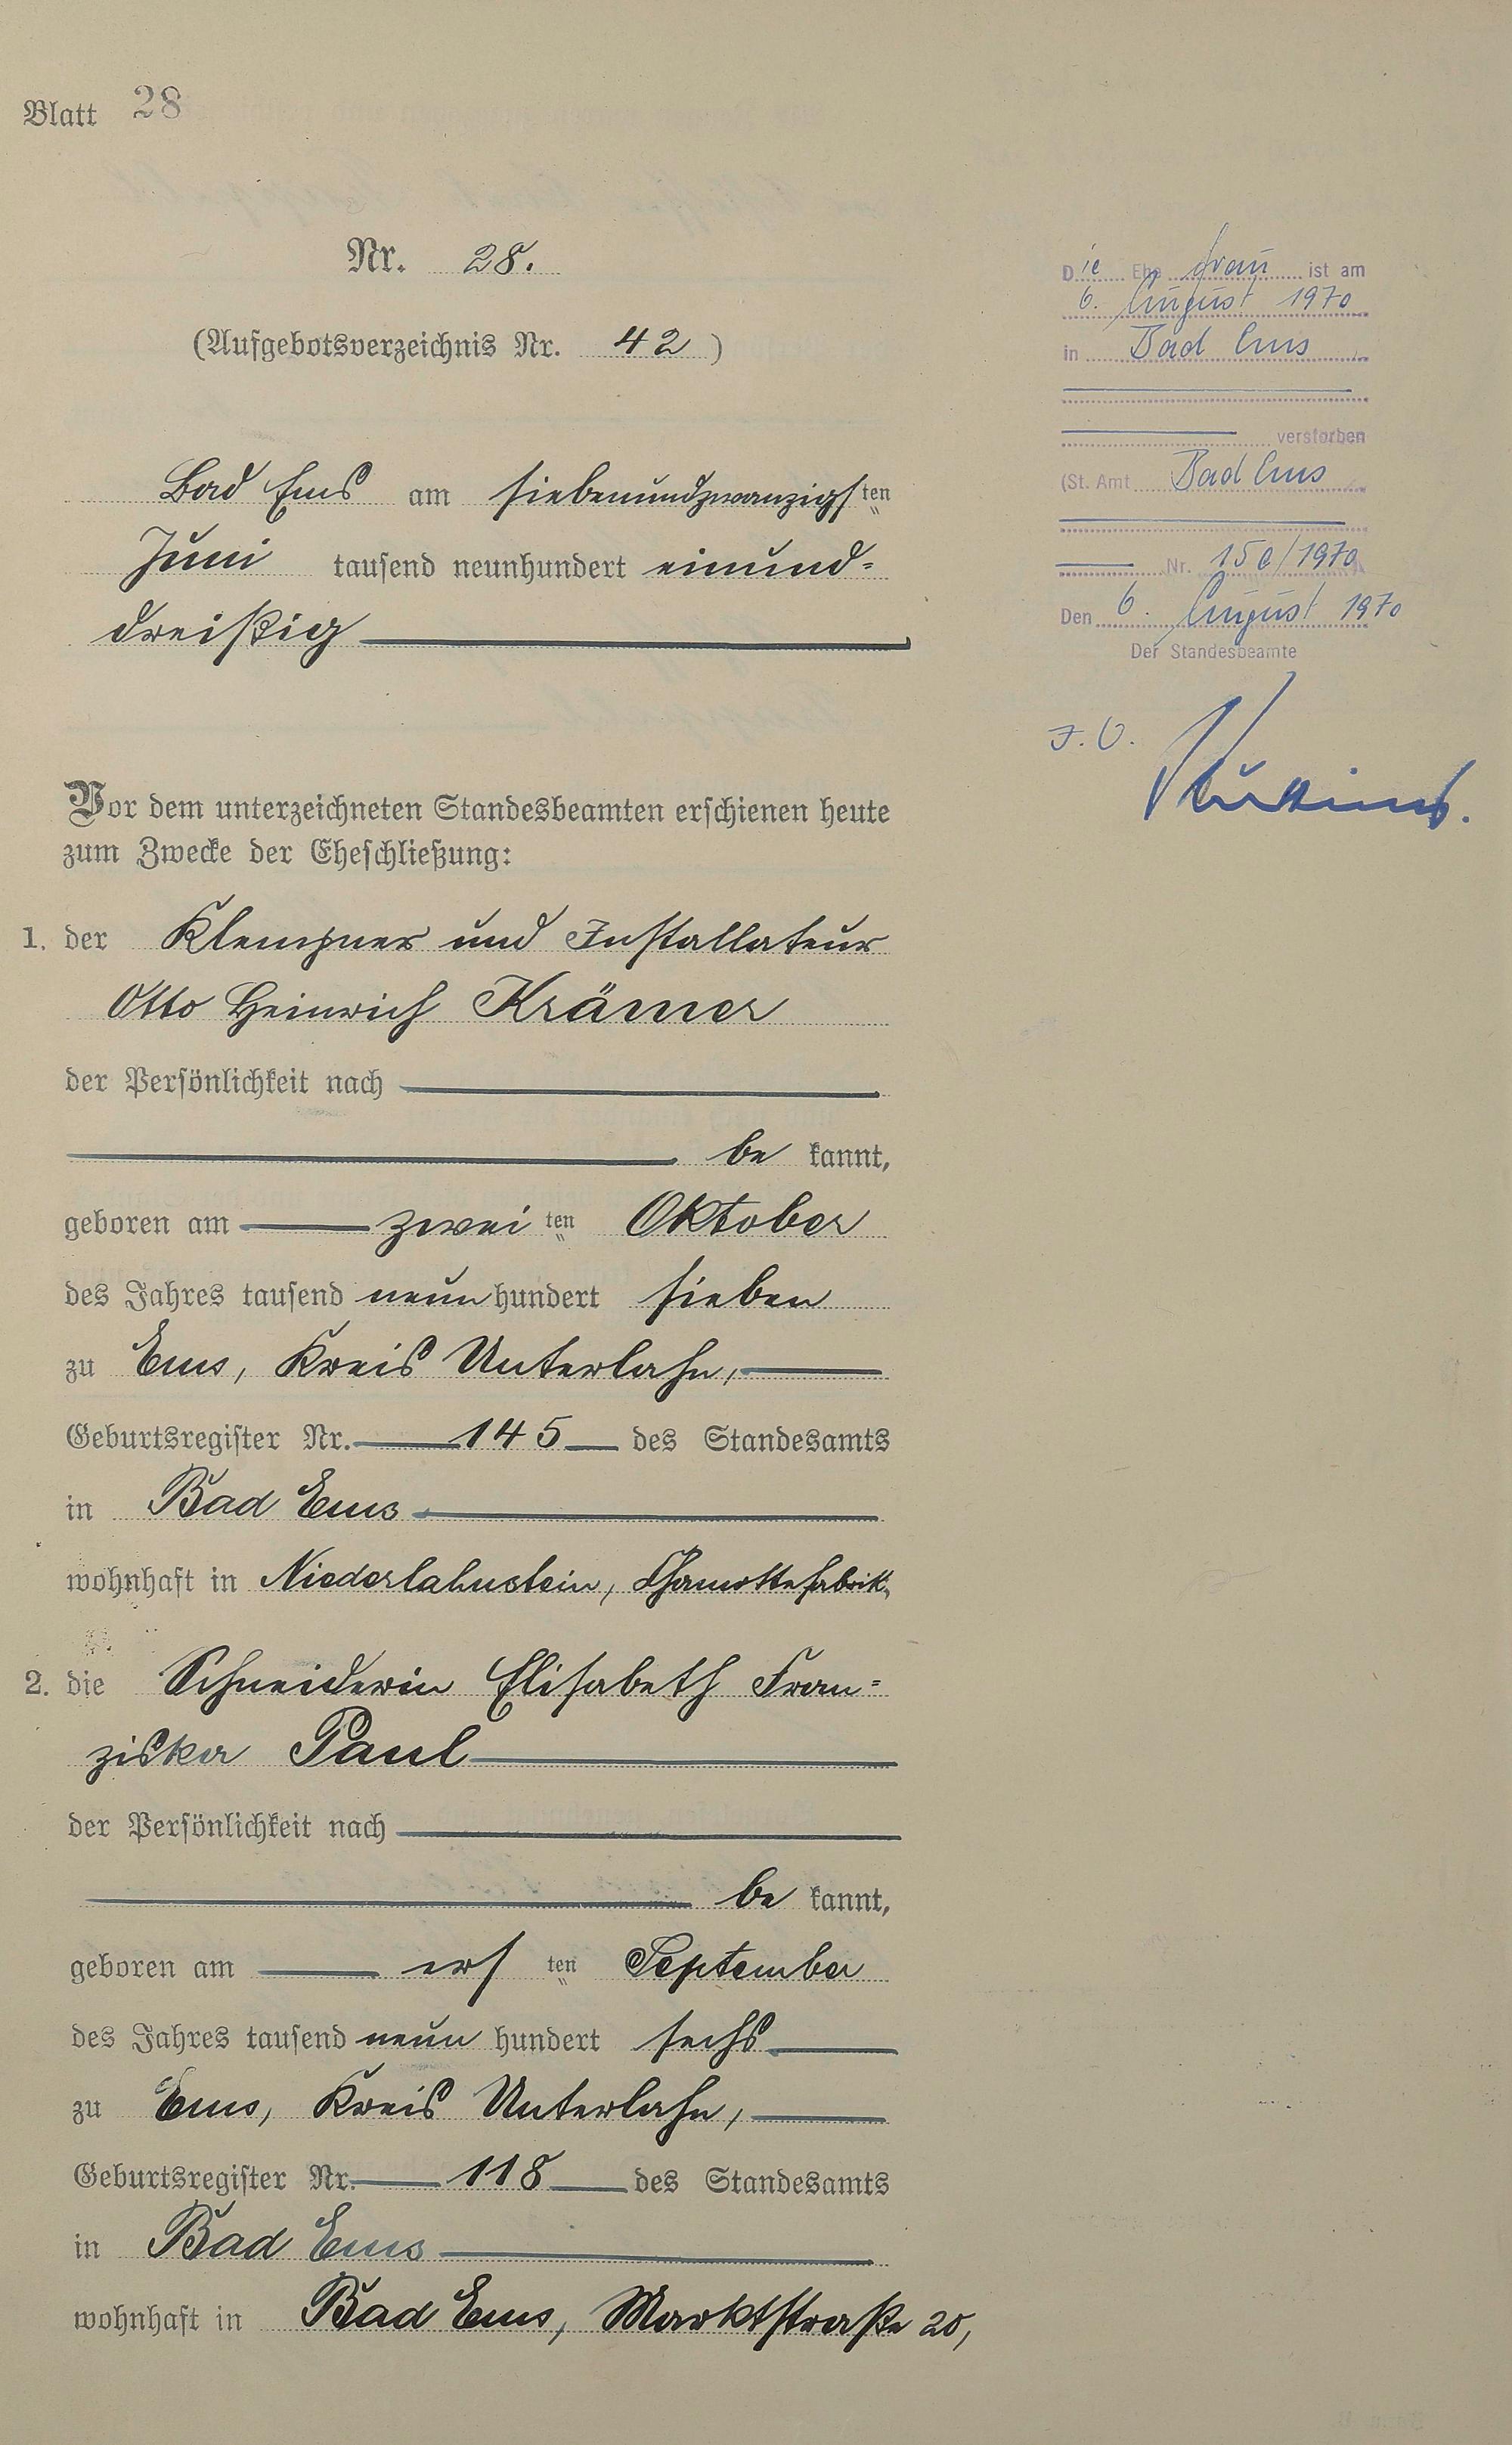 Blatt 28
Nr. 28.
(Aufgebotsverzeichnis Nr. 42)
Bad Ems am siebenundzwanzigsten
Juni tausend neunhundert einund-
dreißig
Vor dem unterzeichneten Standesbeamten erschienen heute
zum Zwecke der Eheschließung:
1. der Klempner und Installateur
Otto Heinrich Krämer
der Persönlichkeit nach
be kannt,
geboren am zwei ten Oktober
des Jahres tausend neun hundert sieben
zu Ems, Kreis Unterlahn,
Geburtsregister Nr. 145 des Standesamts
in Bad Ems
wohnhaft in Niederlahnstein, Chamottefabrik,
2. die Schneiderin Elisabeth Fran-
ziska Paul
der Persönlichkeit nach
be kannt,
geboren am ers ten September
des Jahres tausend neun hundert sechs
zu Ems, Kreis Unterlahn,
Geburtsregister Nr. 118 des Standesamts
in Bad Ems
wohnhaft in Bad Ems, Marktstraße 20,
Die Ehefrau ist am
6. August 1970
in Bad Ems
verstorben
(St. Amt Bad Ems
Nr. /1970
Den 6. August 1970
Der Standesbeamte
I.V.